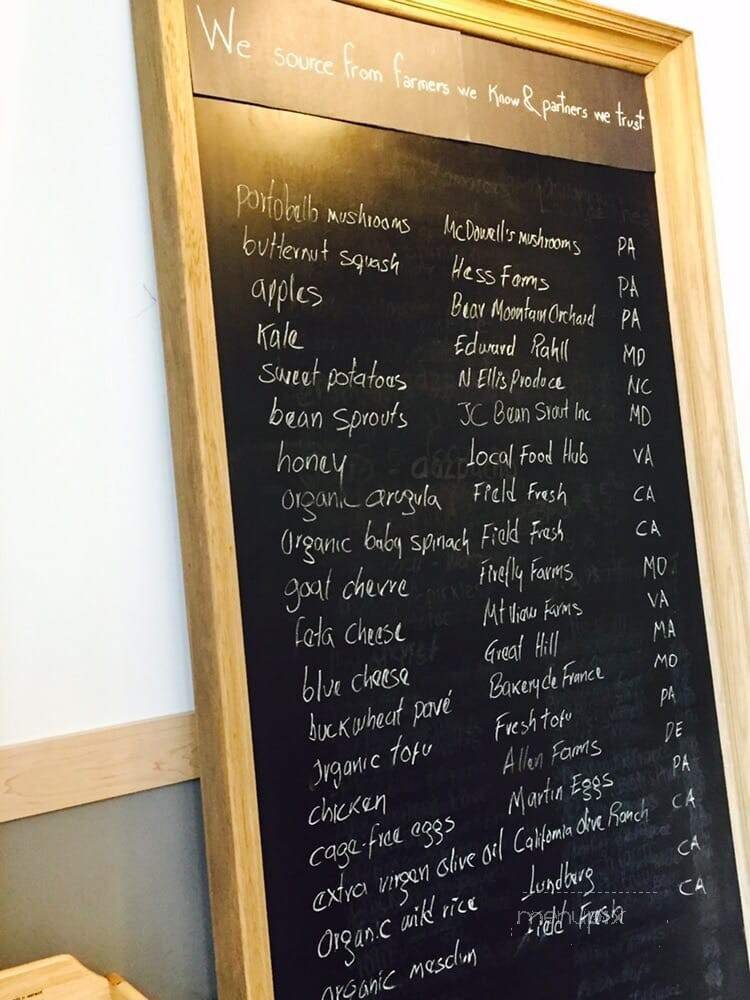 We source from farmers we know & partners we trust
portobello mushrooms McDowell's mushrooms PA
butternut squash Hess Farms PA
apples Bear Mountain Orchard PA
Kale Edward Rahll MD
sweet potatoes N Ellis Produce NC
bean sprouts JC Bean Srout Inc MD
honey Local Food Hub VA
organic arugula Field Fresh CA
Organic baby spinach Field Fresh CA
goat chevre Firefly Farms MD
feta cheese Mt View Farms VA
blue cheese Great Hill MA
buckwheat pavé Bakery de France MD
Organic tofu Fresh tofu PA
chicken Allen Farms DE
cage-free eggs Martin Eggs PA
extra virgen olive oil California Olive Ranch CA
Organic wild rice Lundberg CA
organic masclun Field Fresh CA
menupix